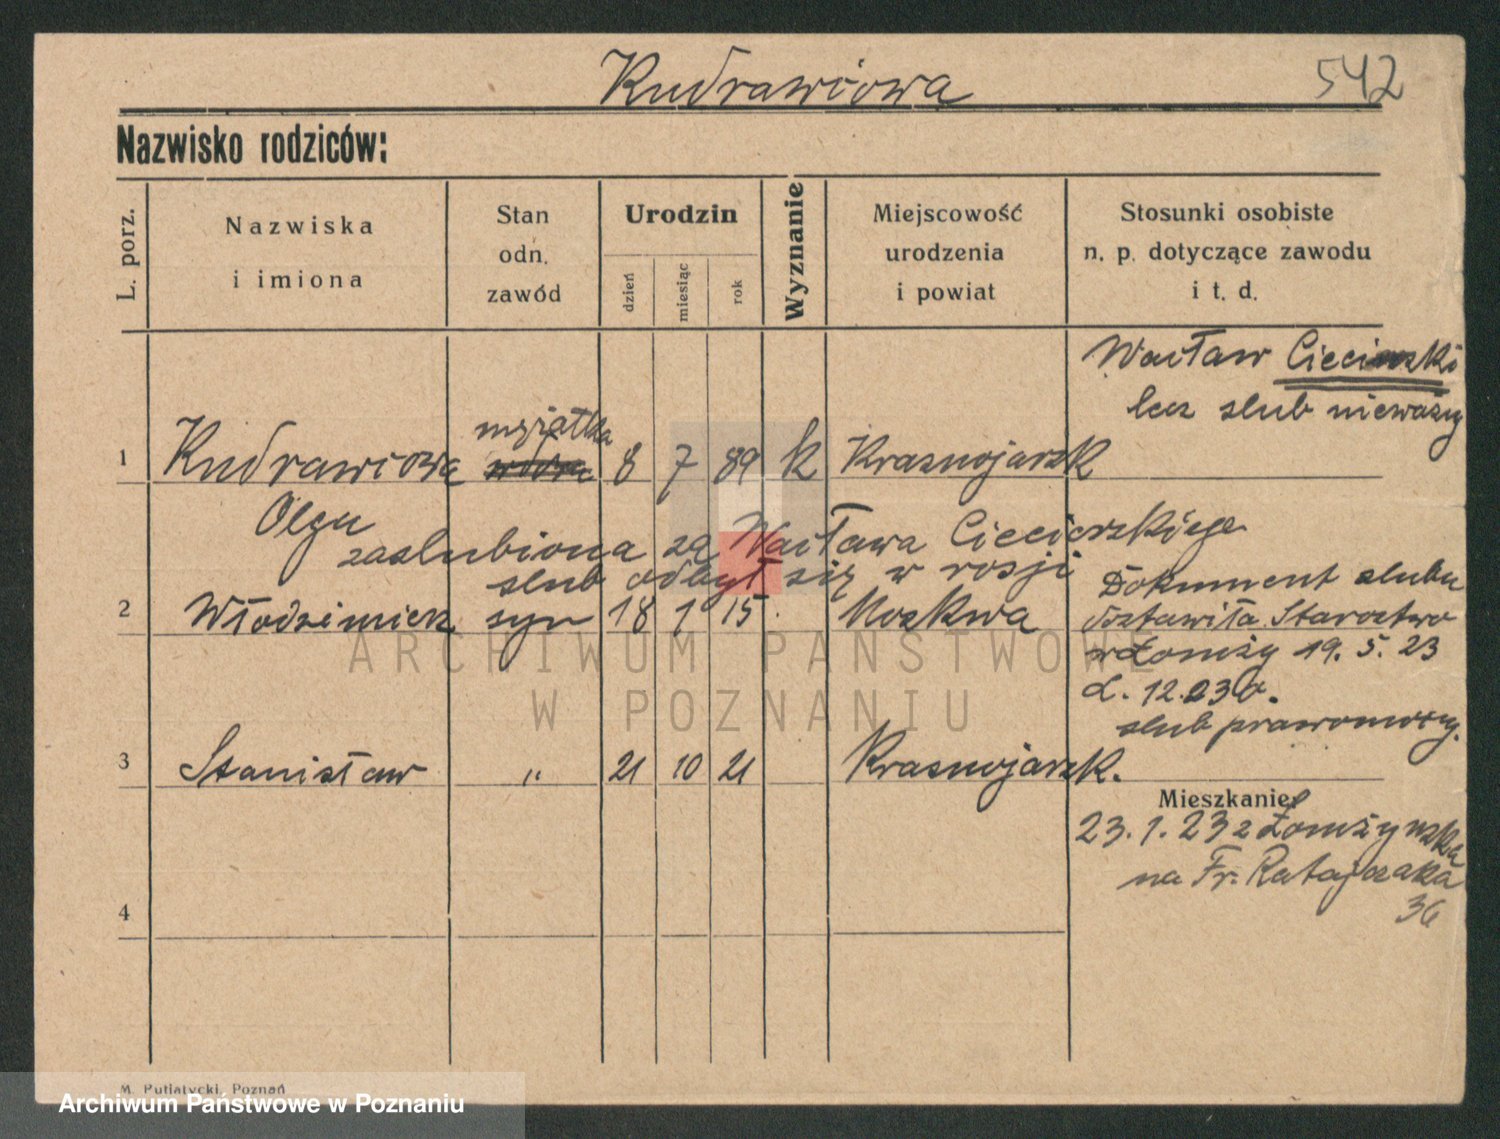 Kudrawcowa 542
Nazwisko rodziców:
L. porz.
Nazwiska
i imiona
Stan
odn.
zawód
Urodzin
dzień
miesiąc
rok
Wyznanie
Miejscowość
urodzenia
i powiat
Stosunki osobiste
n. p. dotyczące zawodu
i t. d.
Wacław Ciecierski
lecz slub nieważny
mężatka
1 Kudrawcowa wdowa 8 7 89 k Krasnojarsk
Olga
zaslubiona za Wacława Ciecierskiego
slub odbył się w rosji
Dokument slubu
2 Włodzimierz syn 18 1 15 Moskwa
dostawiła Starostwo
w Łomży 19. 5. 23
L. 12.230.
slub prawomocny.
3 Stanisław " 21 10 21 Krasnojarsk.
Mieszkanie
23. 1. 23 z Łomżyńska
na Fr. Ratajczaka
36
4
M. Putiatycki, Poznań
ARCHIWUM PAŃSTWOWE
W POZNANIU
Archiwum Państwowe w Poznaniu